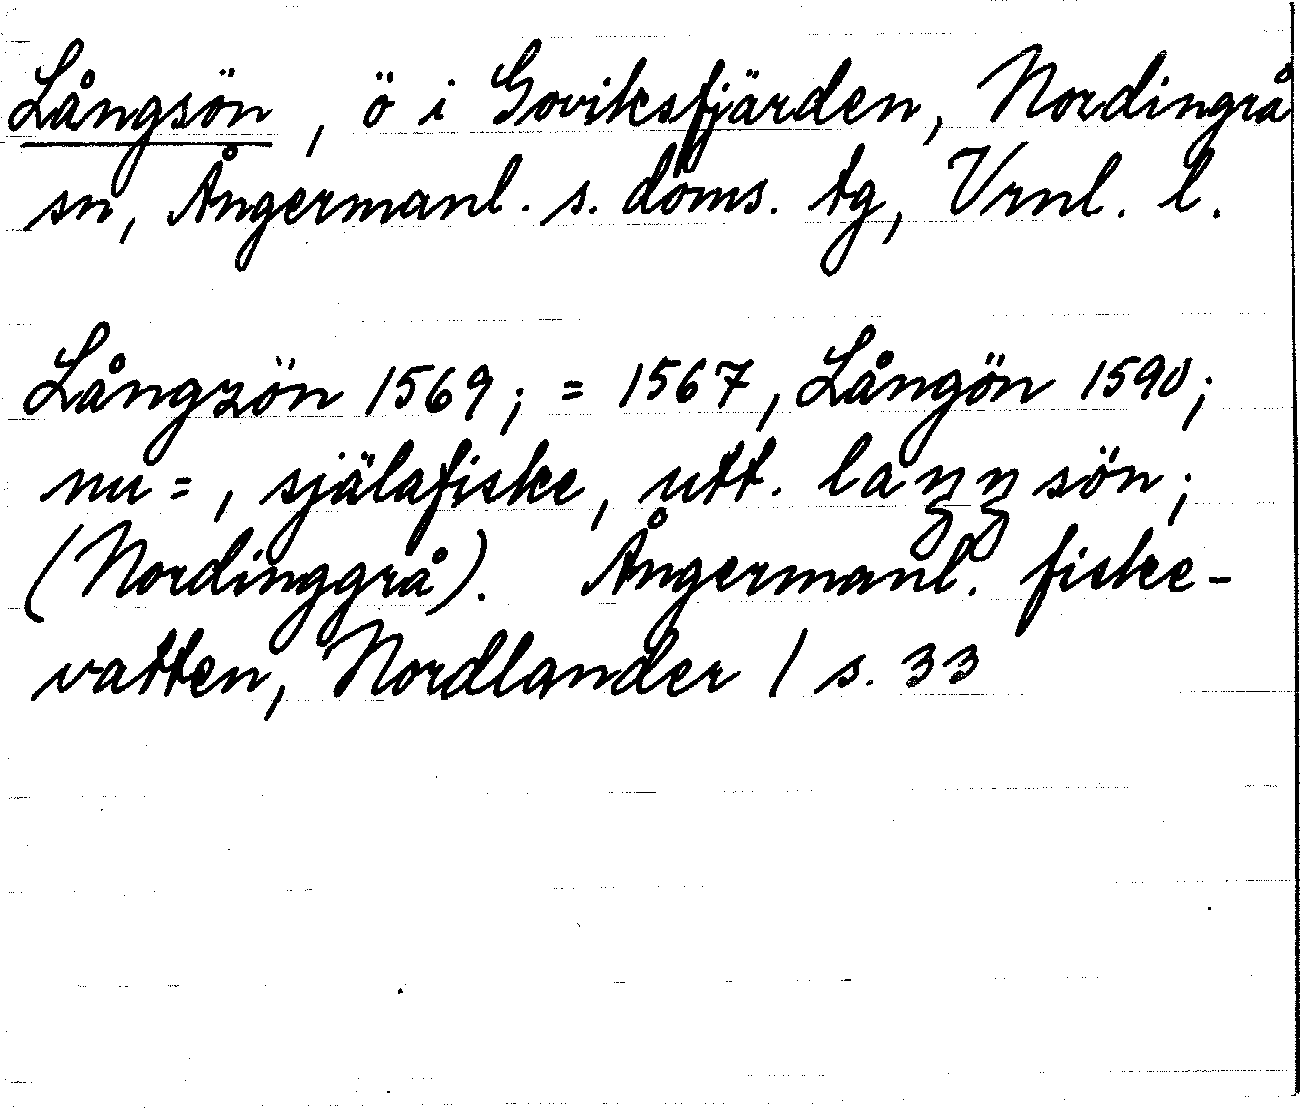 Långsön, ö i Goviksfjärden, Nordingrå
sn, Ångermanl. s. doms. tg, Vrnl. l.
Långzön 1569; = 1567, Långön 1590;
nu =, själafiske, utt. laŋŋsön;
(Nordinggrå). Ångermanl. fiske-
vatten, Nordlander / s. 33